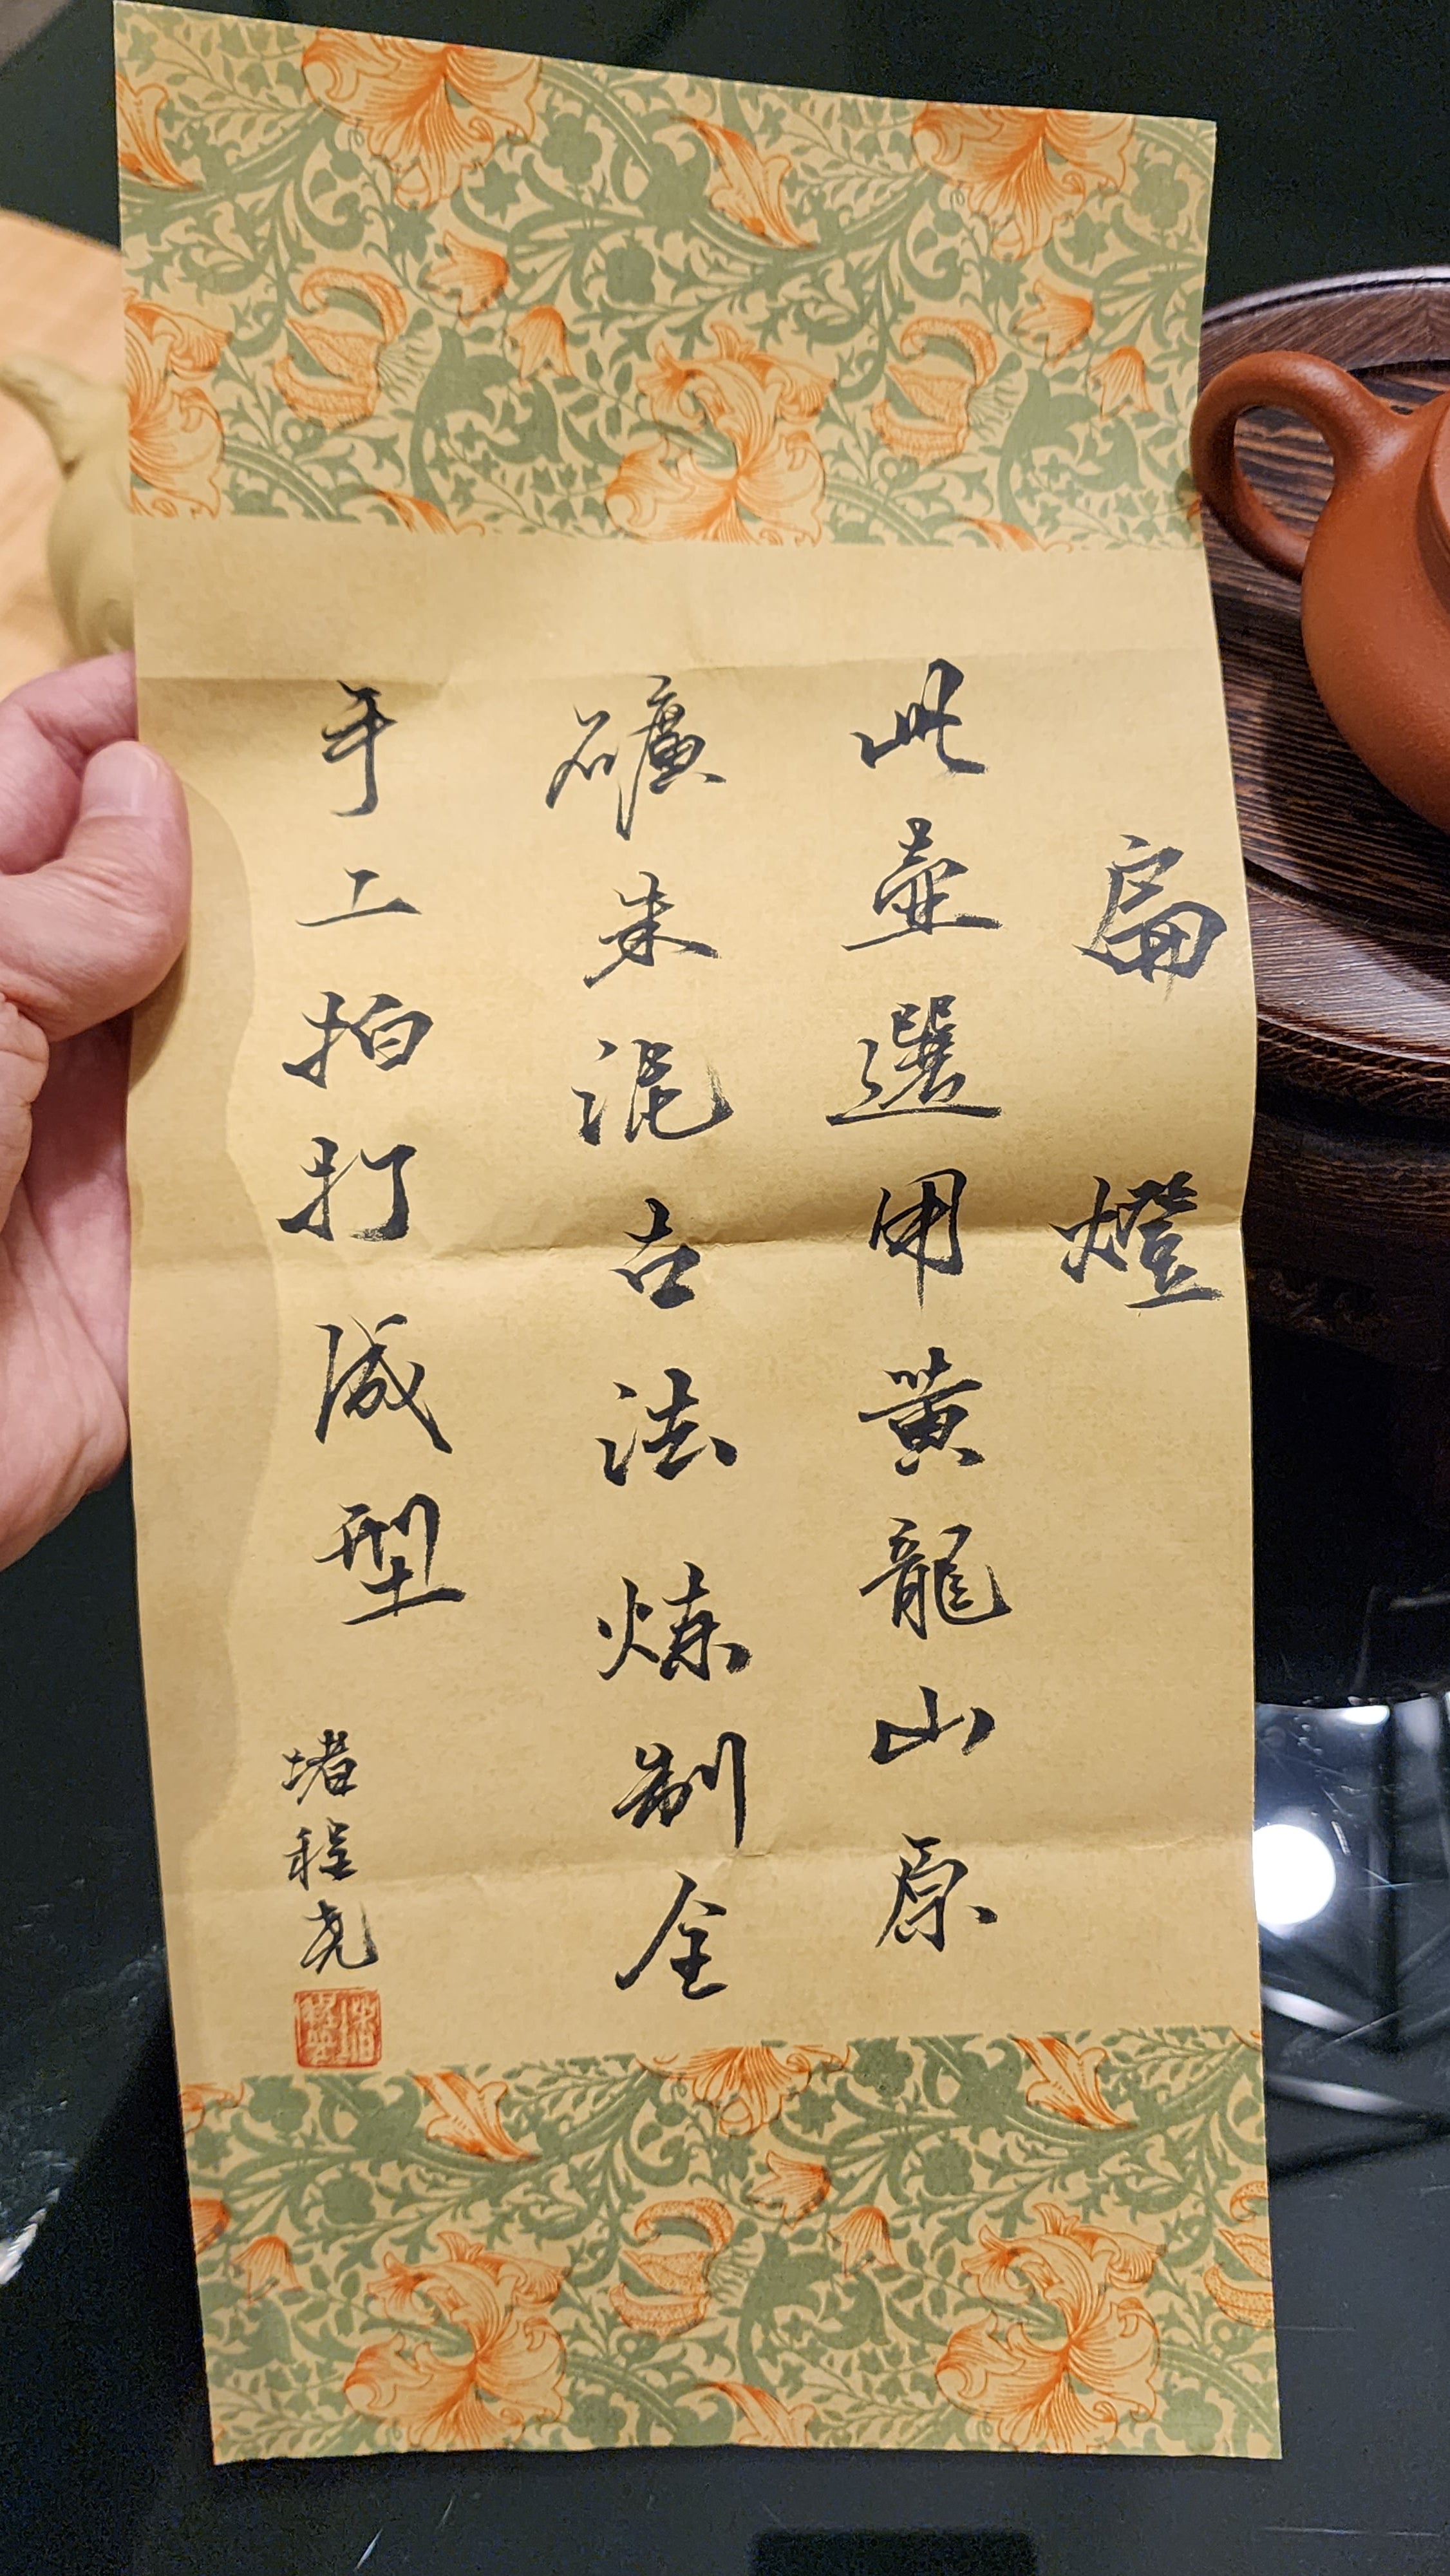 扁燈
此壺選用黄龍山原
礦朱泥古法炼制全
手工拍打成型
堵程尧